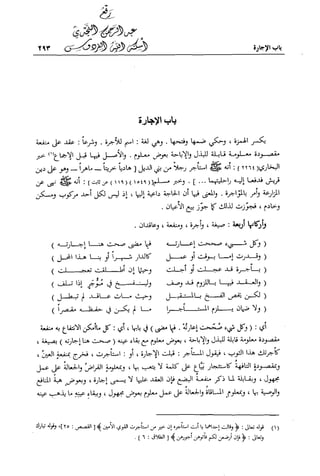 رَفَع
عبد الرحمن النجدي
أسكنه الله الفردوس
باب الإجارة
٢٩٣
باب الإجارة
بكسر الهمزة، وحكي ضمها وفتحها. وهي لغة: اسم للأجرة. وشرعاً: عقد على منفعة
مقصودة معلومة قابلة للبذل والإباحة بعوض معلوم. والأصل فيها قبل الإجماع(١) خبر
البخاري [٢٢٦٤]: أنه ﷺ استأجر رجلاً من بني الديل [هادياً خريتاً ـ ماهراً ـ وهو على دين
قريش فدفعا إليه راحلتيهما ...]. وخبر مسلم [١٥٤٩) (١١٩) عن ثابت]: أنه ﷺ نهى عن
المزارعة وأمر بالمؤاجرة. والمعنى فيها أن الحاجة داعية إليها، إذ ليس لكل أحد مركوب ومسكن
وخادم، فجوزت لذلك كما جوز بيع الأعيان.
وأركانها أربعة: صيغة، وأجرة، ومنفعة، وعاقدان.
(وكل شيء صححت إعارته فيما مضى صحت هنا إجارته)
(وقدرت إما بوقت أو عمل كالدار شهراً أو بنا هذا المحل)
(بأجرة قد عجلت أو أجلت وحيثما إن أطلقت تعجلت)
(والعقد فيها باللزوم قد وصف ولينفسخ في مؤجر إذا تلف)
(لكن بخص الفسخ بالمستقبل وحيث مات عاقد لم تبطل)
(ولا ضمان يلزم المستأجرا ما لم يكن في حفظه مقصراً)
أي: (وكل شيء صححت إعارته) في بابها، أي: كل ما أمكن الانتفاع به منفعة
مقصودة معلومة قابلة للبذل والإباحة، بعوض معلوم مع بقاء عينه (صحت هنا إجارته) بصيغة،
كآجرتك هذا الثوب، فيقول المستأجر: قبلت الإجارة، أو: استأجرت، فخرج بمنفعة العين،
وبمقصودة التافهة كاستئجار بياع على كلمة لا يتعب بها، وبمعلومة القراض والجعالة على عمل
مجهول، وبقابلة لما ذكر منفعة البضع فإن العقد عليها لا يسمى إجارة، وبعوض هبة المنافع
والوصية بها، وبمعلوم المساقاة والجعالة على عمل معلوم بعوض مجهول، وببقاء عينه ما يذهب عينه
(١) قوله تعالى: {وقالت إحداهما يا أبت استأجره إن خير من استأجرت القوي الأمين} [القصص: ٢٥]؛ وقوله تبارك
وتعالى: {فإن أرضعن لكم فآتوهن أجورهن} [الطلاق: ٦].